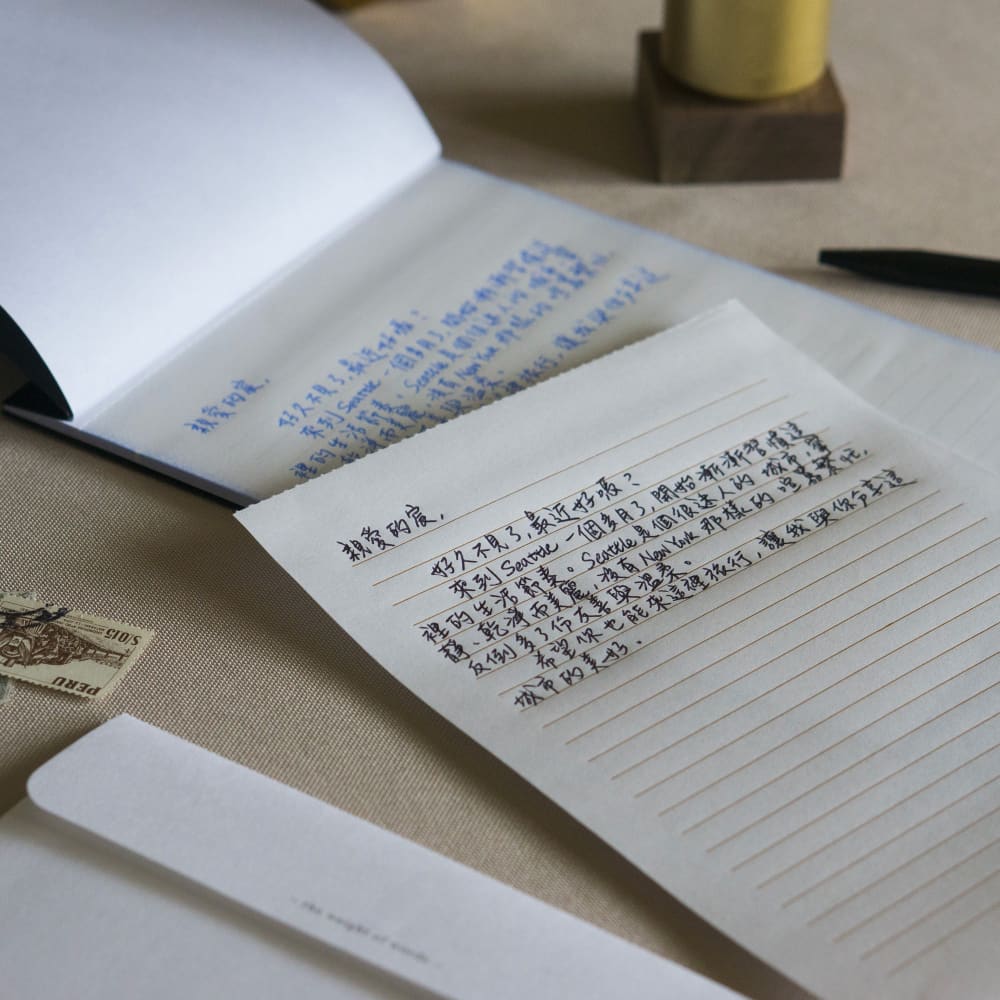 親愛的宸,
好久不見了,最近好嗎?
來到 Seattle 一個多月了,開始漸漸習慣這
裡的生活節奏。Seattle是個很迷人的城市,寧
靜、乾淨而美麗,沒有New York 那樣的喧囂繁忙,
反倒多了份友善與溫柔。
希望你也能來這裡旅行,讓我與你分享這
城市的美好。
親愛的宸,
好久不見了,最近好嗎?
來到 Seattle 一個多月了,開始漸漸習慣這
裡的生活節奏。Seattle是個很迷人的城市,寧
而美麗,沒有New York 那樣的喧囂繁忙,
與溫柔。
裡旅行,讓我與你分享這
S/015
PERU
- the weight of words -